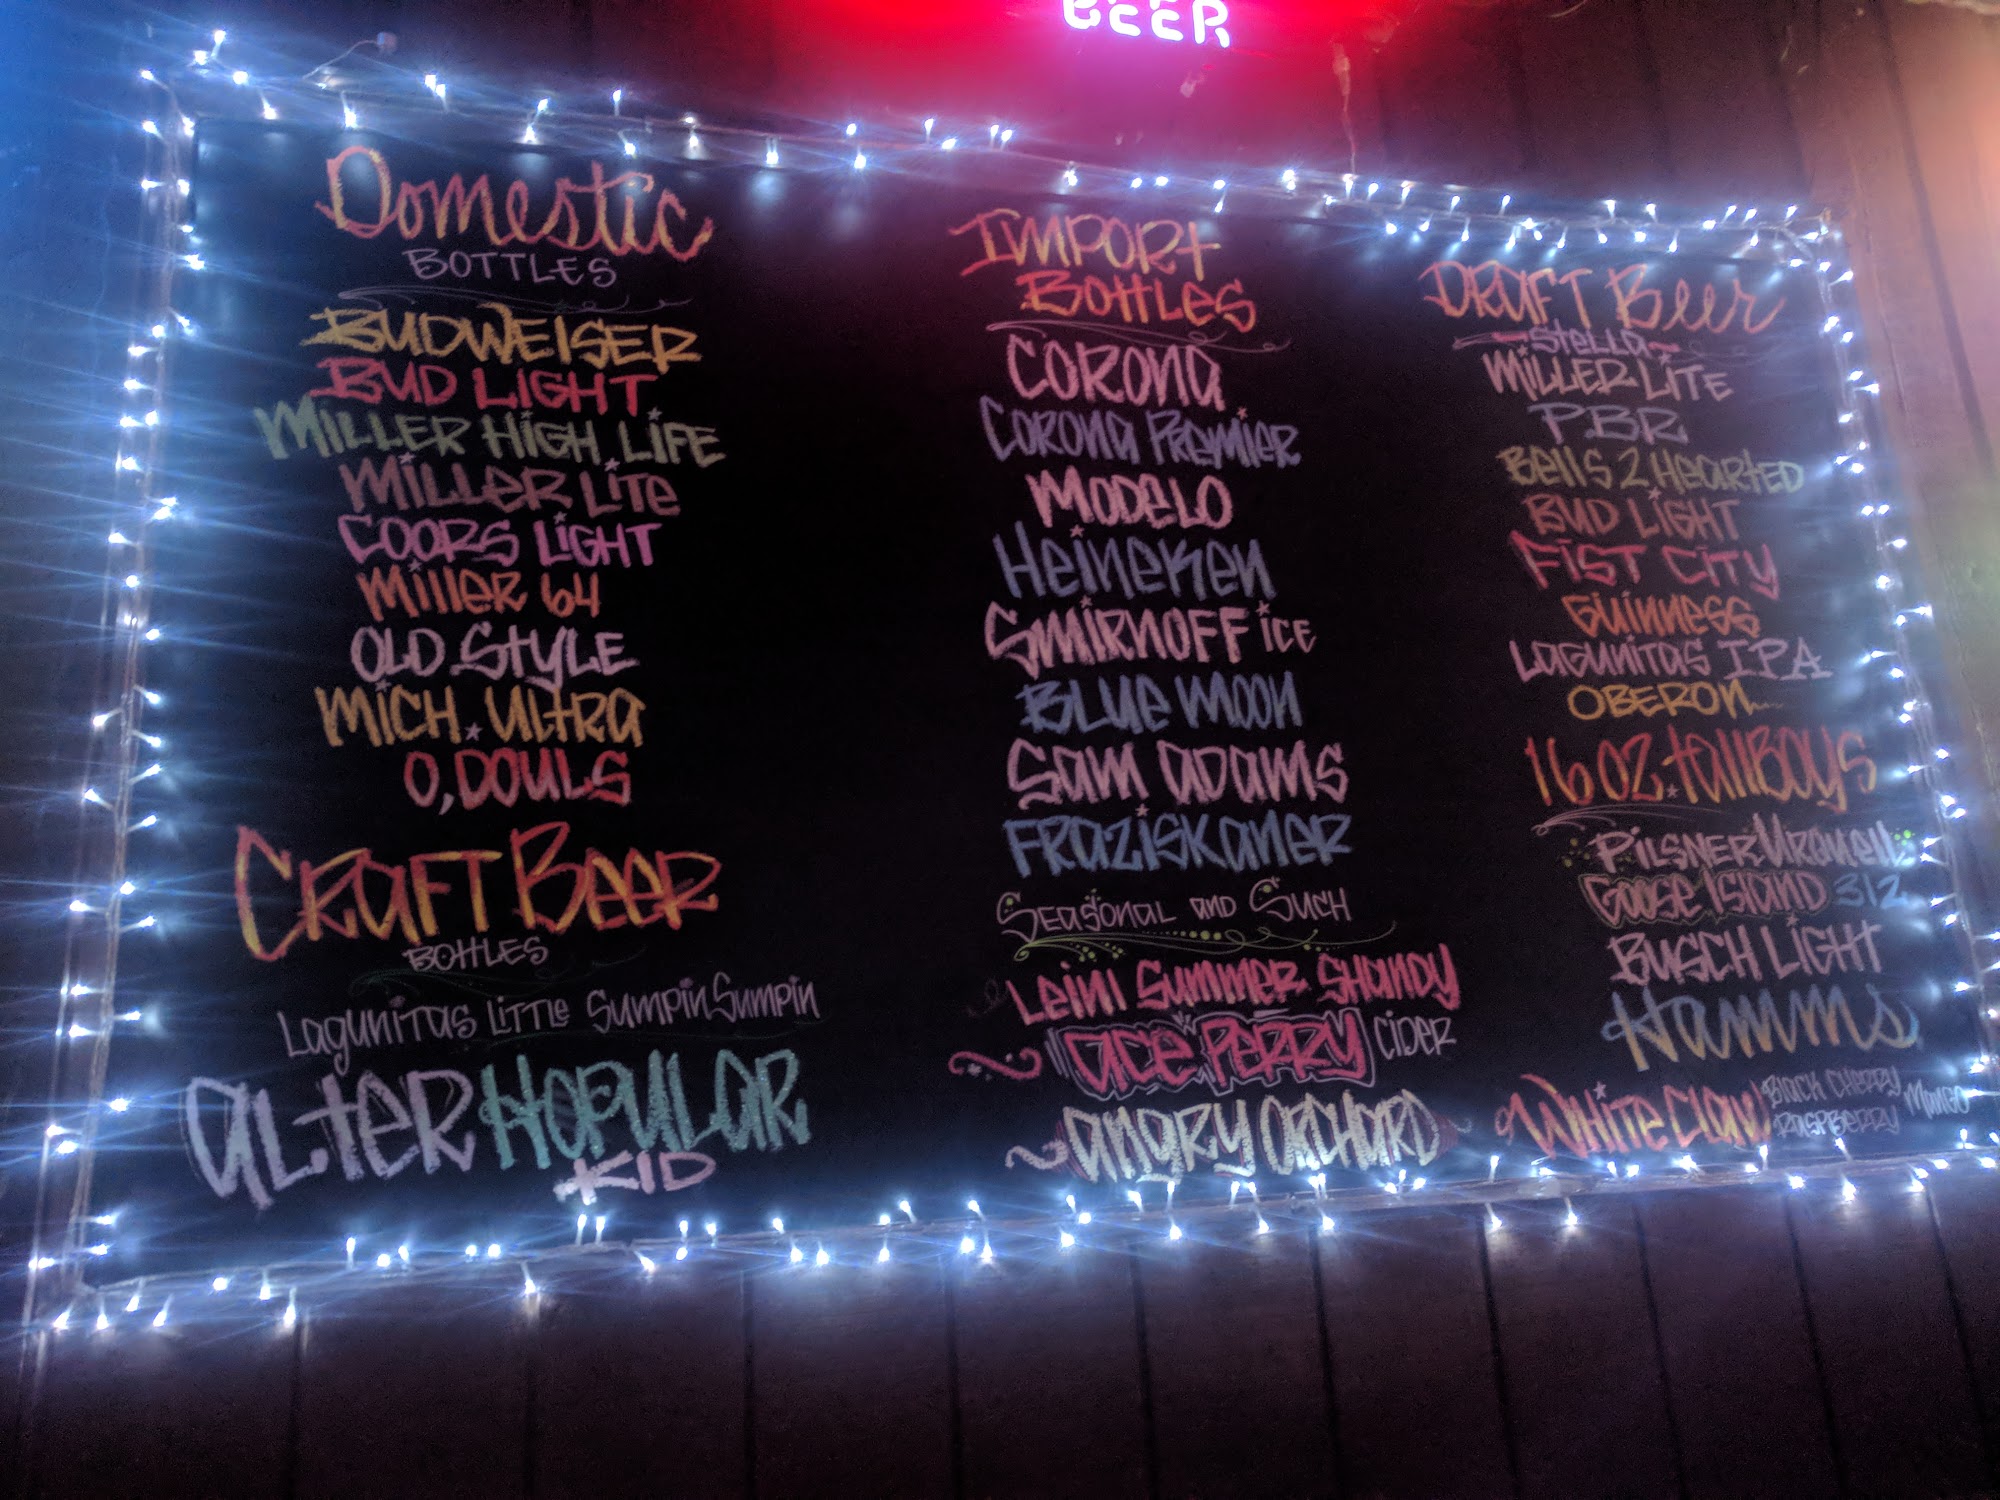 BEER
Domestic
BOTTLES
BUDWEISER
BUD LIGHT
MILLER HIGH LIFE
MILLER LITE
COORS LIGHT
MILLER 64
OLD STYLE
MICH. ULTRA
O,DOULS
CRAFT BEER
BOTTLES
LAGUNITAS LITTLE SUMPIN SUMPIN
ALTER HOPULAR
KID
IMPORT
BOTTLES
CORONA
CORONA PREMIER
MODELO
HEINEKEN
SMIRNOFF ICE
BLUE MOON
SAM ADAMS
FRAZISKANER
SEASONAL AND SUCH
LEINI SUMMER SHANDY
ACE PERRY CIDER
ANGRY ORCHARD
DRAFT Beer
STELLA
MILLER LITE
PBR
BELLS 2 HEARTED
BUD LIGHT
FIST CITY
GUINNESS
LAGUNITAS IPA
OBERON...
16 OZ. tallBOYS
PILSNER URQUELL
GOOSE ISLAND 312
BUSCH LIGHT
Hamms
WHITE CLAW BLACK CHERRY MANGO
RASPBERRY